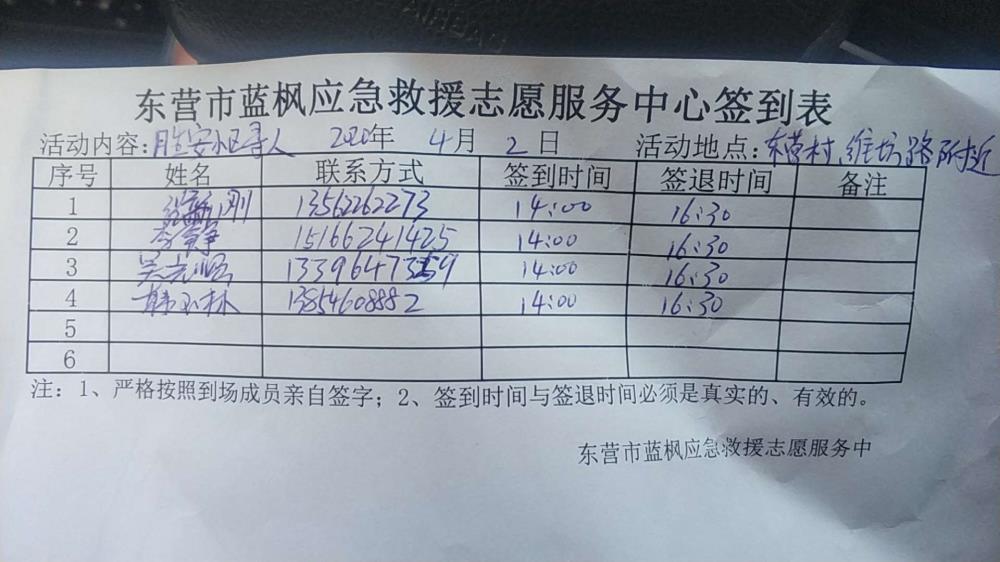 东营市蓝枫应急救援志愿服务中心签到表
活动内容: 胜安小区寻人 2020年 4月 2日 活动地点: 东营村、潍坊路附近
序号 姓名 联系方式 签到时间 签退时间 备注
1 刚 13562262273 14:00 16:30
2 李静 15166241425 14:00 16:30
3 吴 顺 14:00 16:30
4 韩玉林 13854608882 14:00 16:30
5
6
注: 1、严格按照到场成员亲自签字; 2、签到时间与签退时间必须是真实的、有效的。
东营市蓝枫应急救援志愿服务中